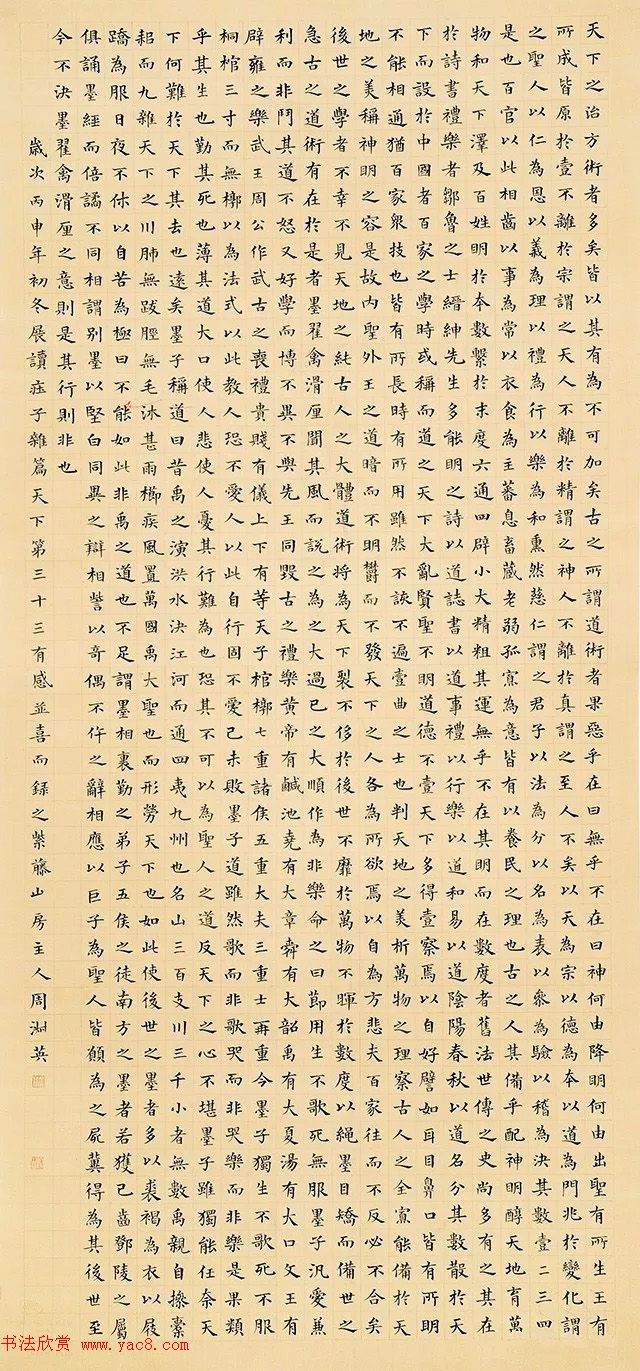 天下之治方術者多矣皆以其有為不可加矣古之所謂道術者果惡乎在曰無乎不在曰神何由降明何由出聖有所生王有
所成皆原於壹不離於宗謂之天人不離於精謂之神人不離於真謂之至人不矣以天為宗以德為本以道為門兆於變化謂
之聖人以仁為恩以義為理以禮為行以樂為和熏然慈仁謂之君子以法為分以名為表以參為驗以稽為決其數壹二三四
是也百官以此相齒以事為常以衣食為主蕃息畜藏老弱孤寡為意皆有以養民之理也古之人其備乎配神明醇天地育萬
物和天下澤及百姓明於本數繫於末度六通四辟小大精粗其運無乎不在其明而在數度者舊法世傳之史尚多有之其在
於詩書禮樂者鄒魯之士縉紳先生多能明之詩以道誌書以道事禮以行樂以道和易以道陰陽春秋以道名分其數散於天
下而設於中國者百家之學時或稱而道之天下大亂賢聖不明道德不壹天下多得壹察焉以自好譬如耳目鼻口皆有所明
不能相通猶百家眾技也皆有所長時有所用雖然不該不遍壹曲之士也判天地之美析萬物之理察古人之全寡能備於天
地之美稱神明之容是故內聖外王之道暗而不明鬱而不發天下之人各為所欲焉以自為方悲夫百家往而不反必不合矣
後世之學者不幸不見天地之純古人之大體道術將為天下裂不侈於後世不靡於萬物不暉於數度以繩墨自矯而備世之
急古之道術有在於是者墨翟禽滑厘聞其風而說之為之大過已之大順作為非樂命之曰節用生不歌死無服墨子汎愛兼
利而非鬥其道不怒又好學而博不異不與先王同毀古之禮樂黃帝有鹹池堯有大章舜有大韶禹有大夏湯有大口文王有
辟雍之樂武王周公作武古之喪禮貴賤有儀上下有等天子棺槨七重諸侯五重大夫三重士再重今墨子獨生不歌死不服
桐棺三寸而無槨以為法式以此教人恐不愛人以此自行固不愛己未敗墨子道雖然歌而非歌哭而非哭樂而非樂是果類
乎其生也勤其死也薄其道大口使人悲使人憂其行難為也恐其不可以為聖人之道反天下之心不堪墨子雖獨能任奈天
下何難於天下其去也遠矣墨子稱道曰昔禹之演洪水決江河而通四夷九州也名山三百支川三千小者無數禹親自操橐
耜而九雜天下之川肺無跋脛無毛沐甚雨櫛疾風置萬國禹大聖也而形勞天下也如此使後世之墨者多以裘褐為衣以屐
蹻為服日夜不休以自苦為極曰不能如此非禹之道也不足謂墨相裏勤之弟子五侯之徒南方之墨者若獲已齒鄧陵之屬
俱誦墨經而倍譎不同相謂別墨以堅白同異之辯相訾以奇偶不仵之辭相應以巨子為聖人皆願為之屍冀得為其後世至
今不決墨翟禽滑厘之意則是其行則非也
歲次丙申年初冬展讀莊子雜篇天下第三十三有感並喜而錄之紫藤山房主人周湘英
书法欣赏
www.yac8.com